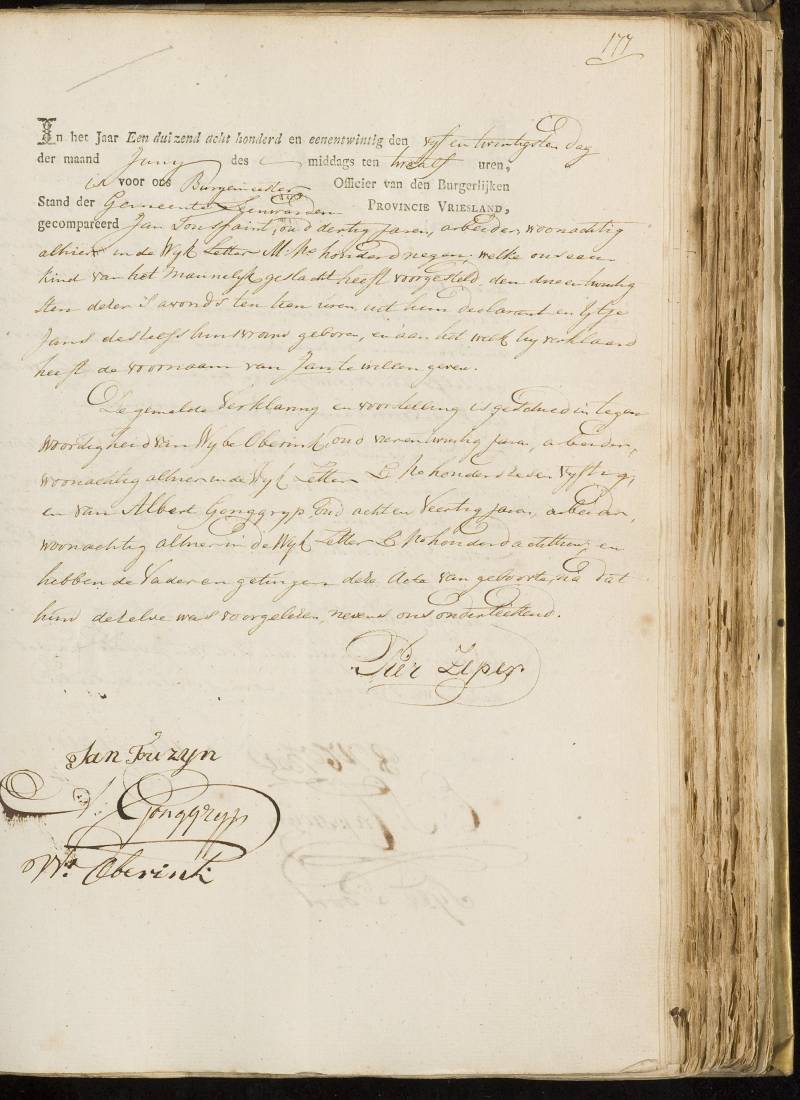 177
In het Jaar Een duizend acht honderd en eenentwintig den vyf en twintigsten dag
der maand Juny des middags ten twaalf uren,
voor ons Burgemeester Officier van den Burgerlijken
Stand der Gemeente Leeuwarden PROVINCIE VRIESLAND,
gecompareerd Jan Toussaint, oud dertig jaren, arbeider, woonachtig
alhier in de Wyk Letter M. No honderd negen; welke ons een
kind van het Mannelyk geslacht heeft voorgesteld, den drie en twintig
sten dezer 's avonds ten tien uren, uit hem declarant en Ytje
Jans deszelfs huisvrouw geboren, en aan het welk hy verklaard
heeft de voornaam van Jan te willen geven.
De gemelde verklaring en voorstelling is geschied in tegen
woordigheid van Wybe Oberink, oud vier en twintig jaren, arbeider,
woonachtig alhier in de Wyk Letter L No honderd zeven vyftig,
en van Albert Gonggryp, oud acht en veertig jaren, arbeider,
woonachtig alhier in de Wyk Letter L No honderd achttien; en
hebben de Vader en getuigen deze Acte van geboorte, na dat
hun dezelve was voorgelezen, nevens ons onderteekend.
Pier Zeper
Jan Touzyn
A: Gonggryp
W: Oberink